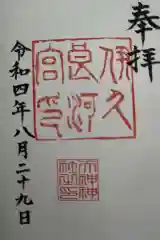 奉拝
伊久
良河
宮印
令和四年八月二十九日